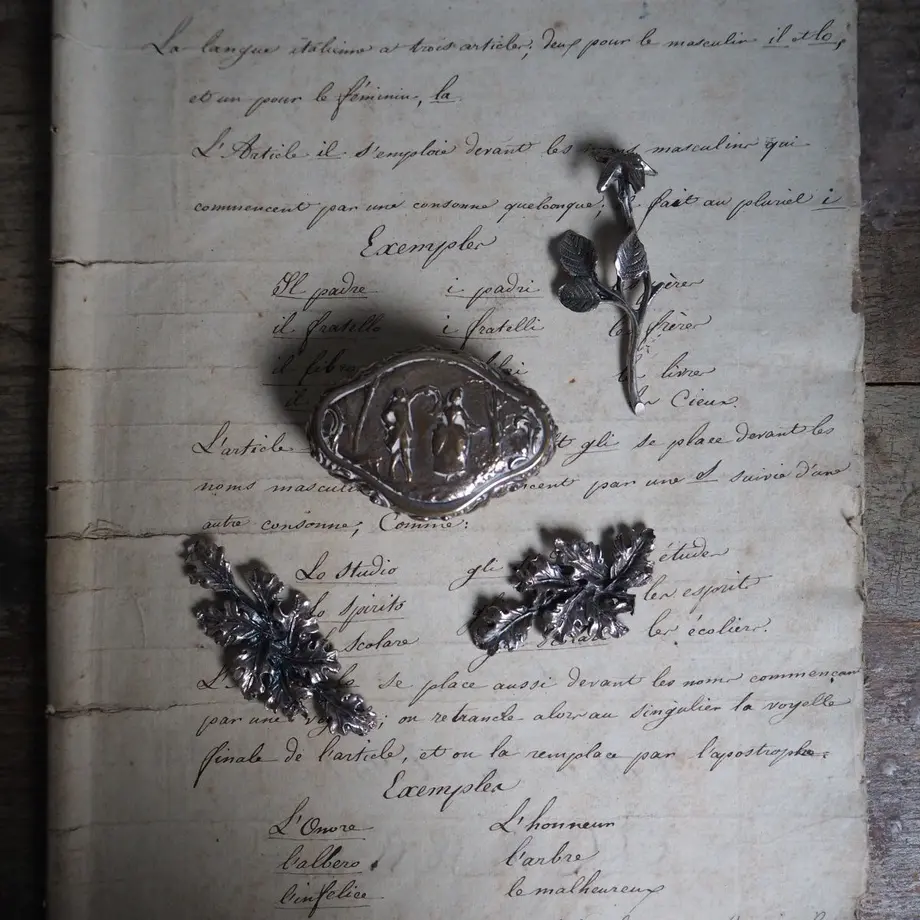 La langue italienne a trois articles, deux pour le masculin il et lo,
et un pour le féminin, la.
L'Article il s'emploie devant les noms masculins qui
commencent par une consonne quelconque; fait au pluriel i
Exemples
Il padre i padri frères
il fratello i fratelli les frères
il libro livres
il les Cieux.
L'article et gli se place devant les
noms masculins par une S suivie d'une
autre consonne, Comme:
Lo studio gli études
Lo spirito les esprits
scolare les écoliers.
L' se place aussi devant les noms commençant
par une voyelle; on retranche alors au singulier la voyelle
finale de l'article, et on la remplace par l'apostrophe.
Exemples
L'Onore L'honneur
l'albero l'arbre
l'infelice le malheureux